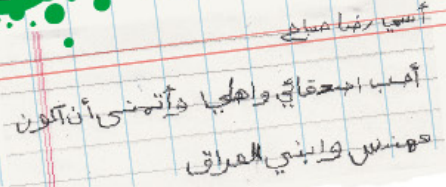 أسمي رضا صباح
أحب اصدقائي واهلي وأتمنى أن آكون
مهندس وابني العراق